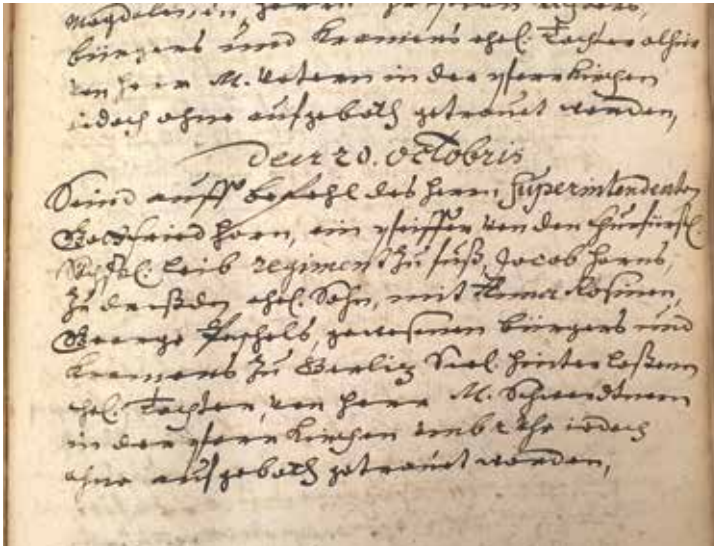 Magdalenen, Herrn
bürgers und Kramers ehel. Tochter alhier
von Herr M. in der pfarrkirchen
iedoch ohne aufgeboth getrauet worden,
den 20. Octobris
Seind auff befehl des Herrn Superintendenten
Gottfried Horn, ein pfeiffer von den Churfürstl.
Sächs. leib regiment zu fuß, Jacob Horns,
zu dreßden ehel. Sohn, mit Anna Rosinen,
George, gewesenen bürgers und
Kramers zu Görlitz Seel. hinterlaßenen
ehel. Tochter, von Herr M. Schwerdtnern
in der pfarr Kirchen umb 2 Uhr iedoch
ohne aufgeboth getrauet worden,